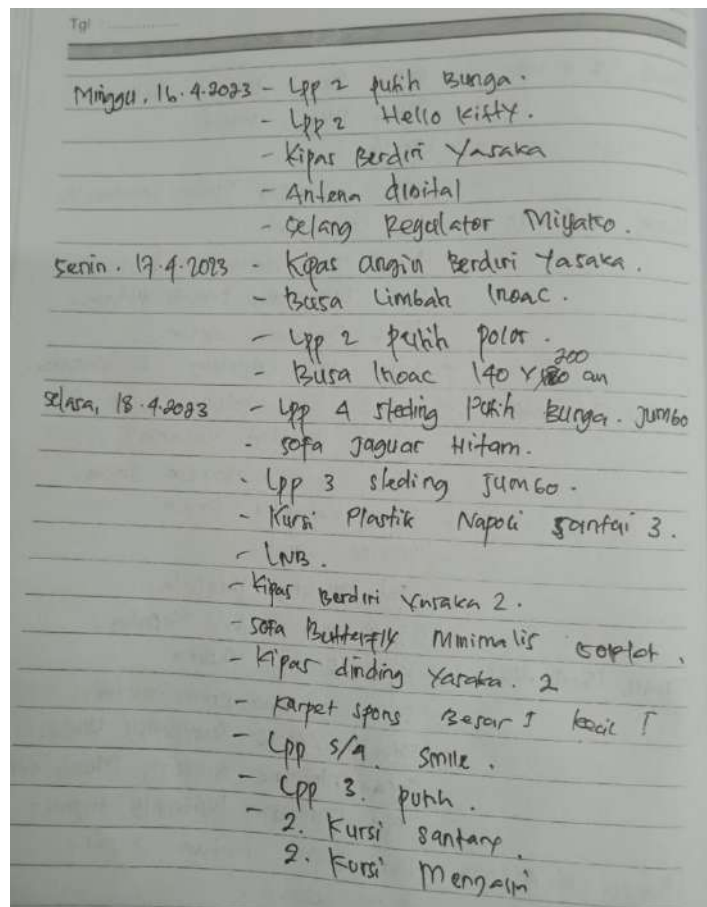 Tgl
Minggu, 16.4.2023 - Lpp 2 putih Bunga.
- Lpp 2 Hello Kitty.
- Kipas Berdiri Yasaka
- Antena digital
- Selang Regulator Miyako.
Senin. 17.4.2023 - Kipas angin Berdiri Yasaka.
- Busa Limbah Inoac.
- Lpp 2 putih polos.
- Busa Inoac 140 x 200 an
Selasa, 18.4.2023 - Lpp 4 sleding Putih Bunga. Jumbo
- Sofa Jaguar Hitam.
- Lpp 3 sleding Jumbo.
- Kursi Plastik Napoli Santai 3.
- LNB.
- Kipas Berdiri Yasaka 2.
- Sofa Butterfly Mnimalis
- Kipas dinding Yasaka. 2
- Karpet spons Besar 1 kecil 1
- Lpp s/a. Smile.
- Lpp 3. putih.
- 2. Kursi
2. Kursi